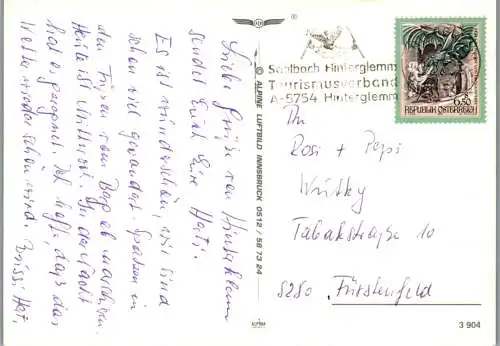 Liebe Grüße von Hinterglemm
sendet Euch Eure Hati.
Es ist wunderschön, wir sind
schon viel gewandert. Spatzen in
den Füßen vom Berg ab marschieren.
Heute ist Mittwoch. In der Nacht
hat es geregnet. Ich hoffe, dass das
Wetter wieder schön wird. Bussi Hati
© ALPINE LUFTBILD INNSBRUCK 0512 / 58 73 24
®
Saalbach Hinterglemm
Tourismusverband
A-5754 Hinterglemm
6.50
REPUBLIK ÖSTERREICH
Rosi + Pepi
Tabakstraße 10
8280 Fürstenfeld
3 904